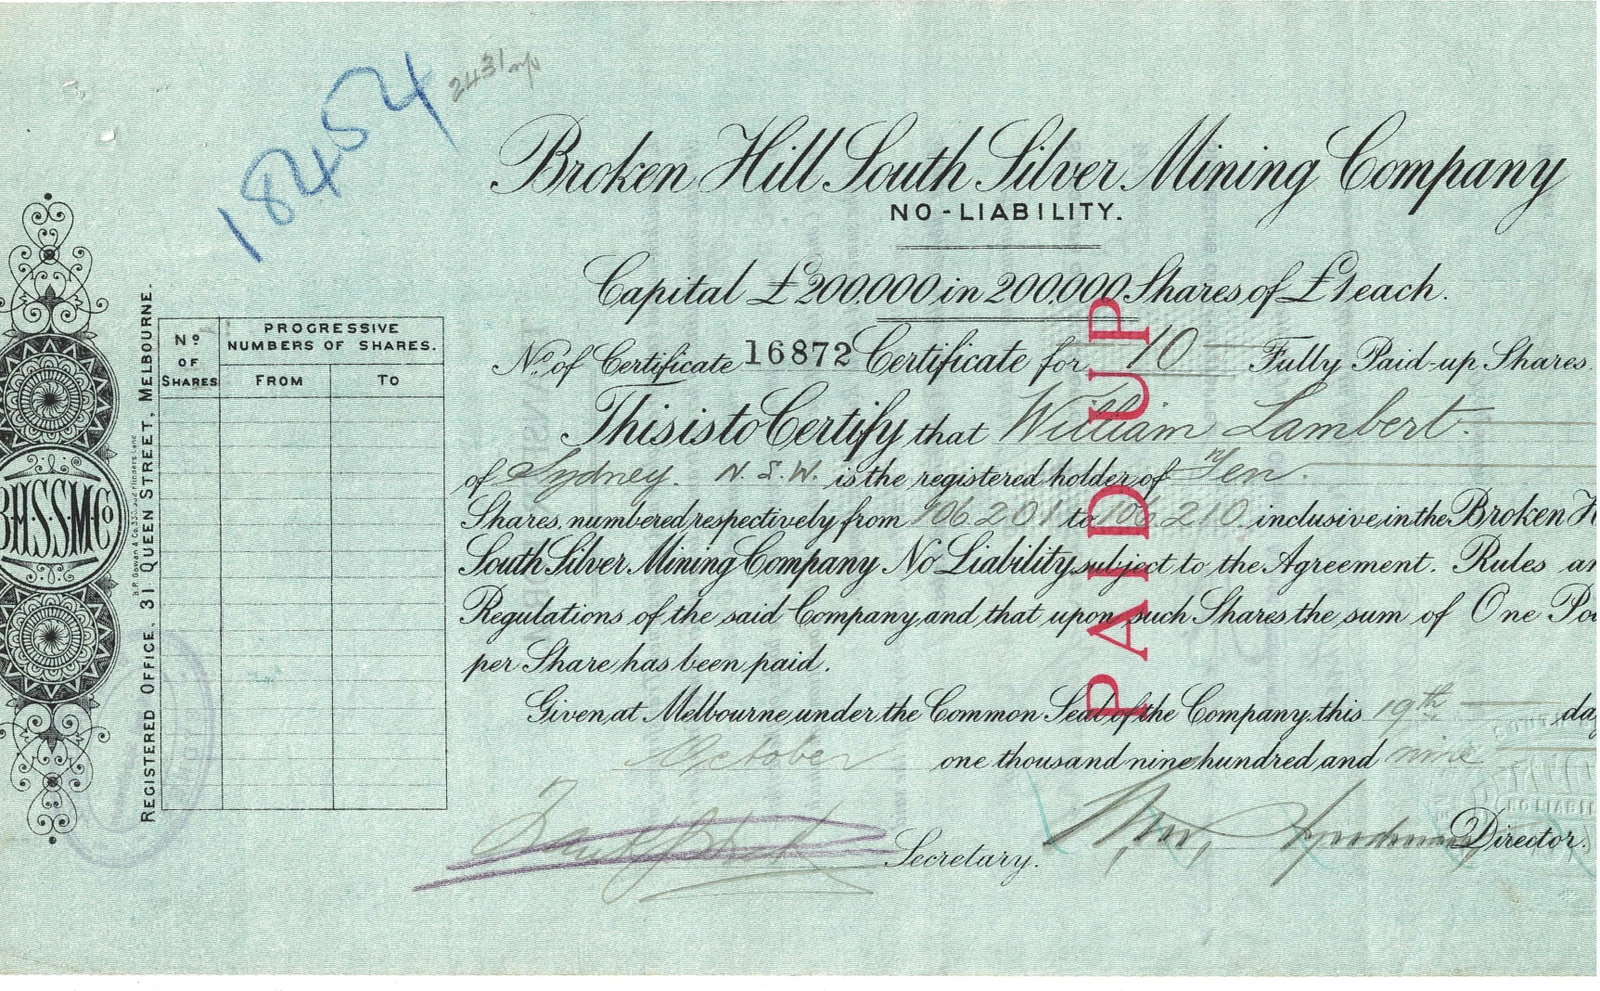 18454
2431
Broken Hill South Silver Mining Company
NO-LIABILITY.
Capital £200.000 in 200.000 Shares of £1 each.
No. of Certificate 16872 Certificate for 10 Fully Paid-up Shares.
This is to Certify that William Lambert.
of Sydney. N.S.W. is the registered holder of Ten.
Shares, numbered respectively from 106201 to 106210 inclusive in the Broken
South Silver Mining Company No Liability subject to the Agreement. Rules
Regulations of the said Company and that upon such Shares the sum of One
per Share has been paid.
Given at Melbourne under the Common Seal of the Company, this 19th
October one thousand nine hundred and nine
Secretary.
Director.
PAID UP
No OF SHARES
PROGRESSIVE NUMBERS OF SHARES.
FROM TO
REGISTERED OFFICE, 31 QUEEN STREET, MELBOURNE.
B.H.S.S.M.Co